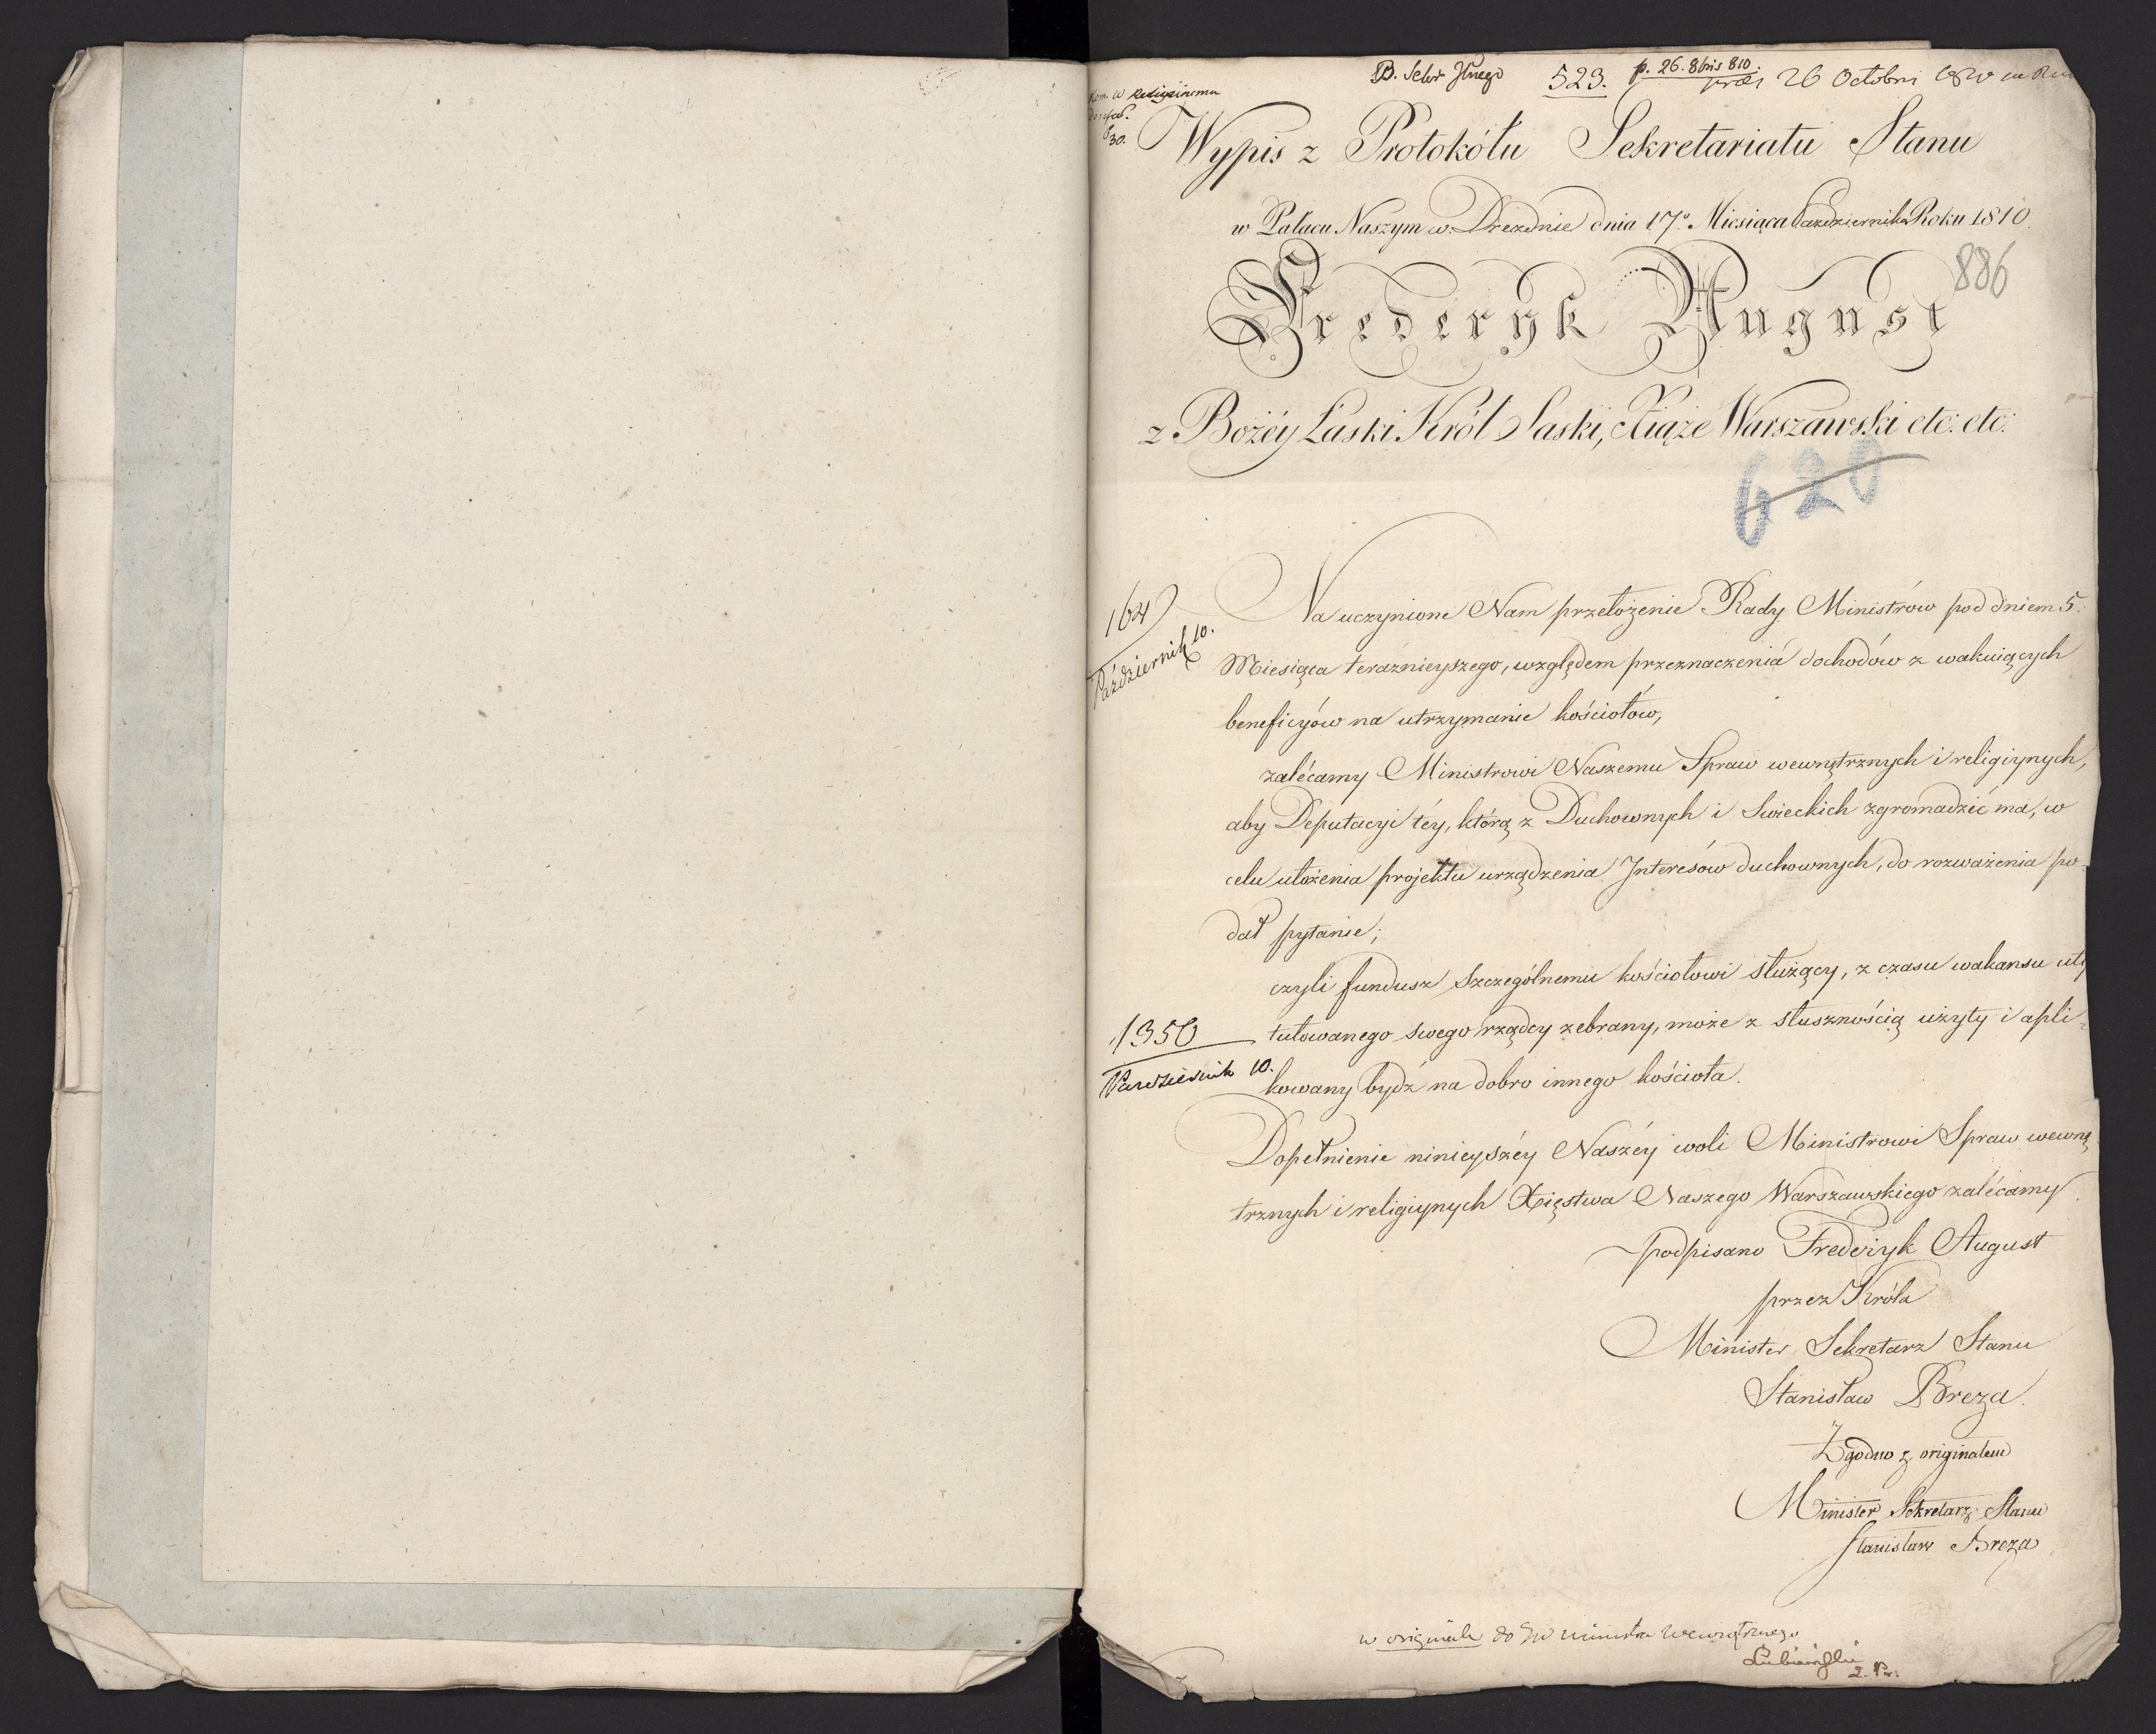 B. Sekr Jlnego 523. p. 26. 8bris 810.
26 Octobri
Wypis z Protokółu Sekretariatu Stanu
w Pałacu Naszym w Dreznie dnia 17º Miesiąca Października Roku 1810.
886
Frederyk August
z Bożéy Łaski Król Saski, Xiąże Warszawski etc: etc:
620
164
Październik 10.
Na uczynione Nam przełożenie Rady Ministrów pod dniem 5.
Miesiąca teraźnieyszego, względem przeznaczenia dochodów z wakuiących
beneficyów na utrzymanie kościołów,
zalécamy Ministrowi Naszemu Spraw wewnętrznych i religiynych,
aby Deputacyi téy, którą z Duchownych i Swieckich zgromadzić ma, w
celu ułożenia projektu urządzenia Interesów duchownych, do rozważenia po-
dał pytanie;
czyli fundusz Szczególnemu kościołowi służący, z czasu wakansu uty
tułowanego swego rządcy zebrany, może z słusznością użyty i apli-
kowany bydź na dobro innego kościoła.
1350
Pazdziernik 10.
Dopełnienie ninieyszéy Naszéy woli Ministrowi Spraw wewnę
trznych i religiynych Xięstwa Naszego Warszawskiego zalécamy.
podpisano Frederyk August
przez Króla
Minister Sekretarz Stanu
Stanisław Breza.
Zgodno z originałem
Minister Sekretarz Stanu
Stanisław Breza
w originale do ministra wewnętrznego
Łubieński